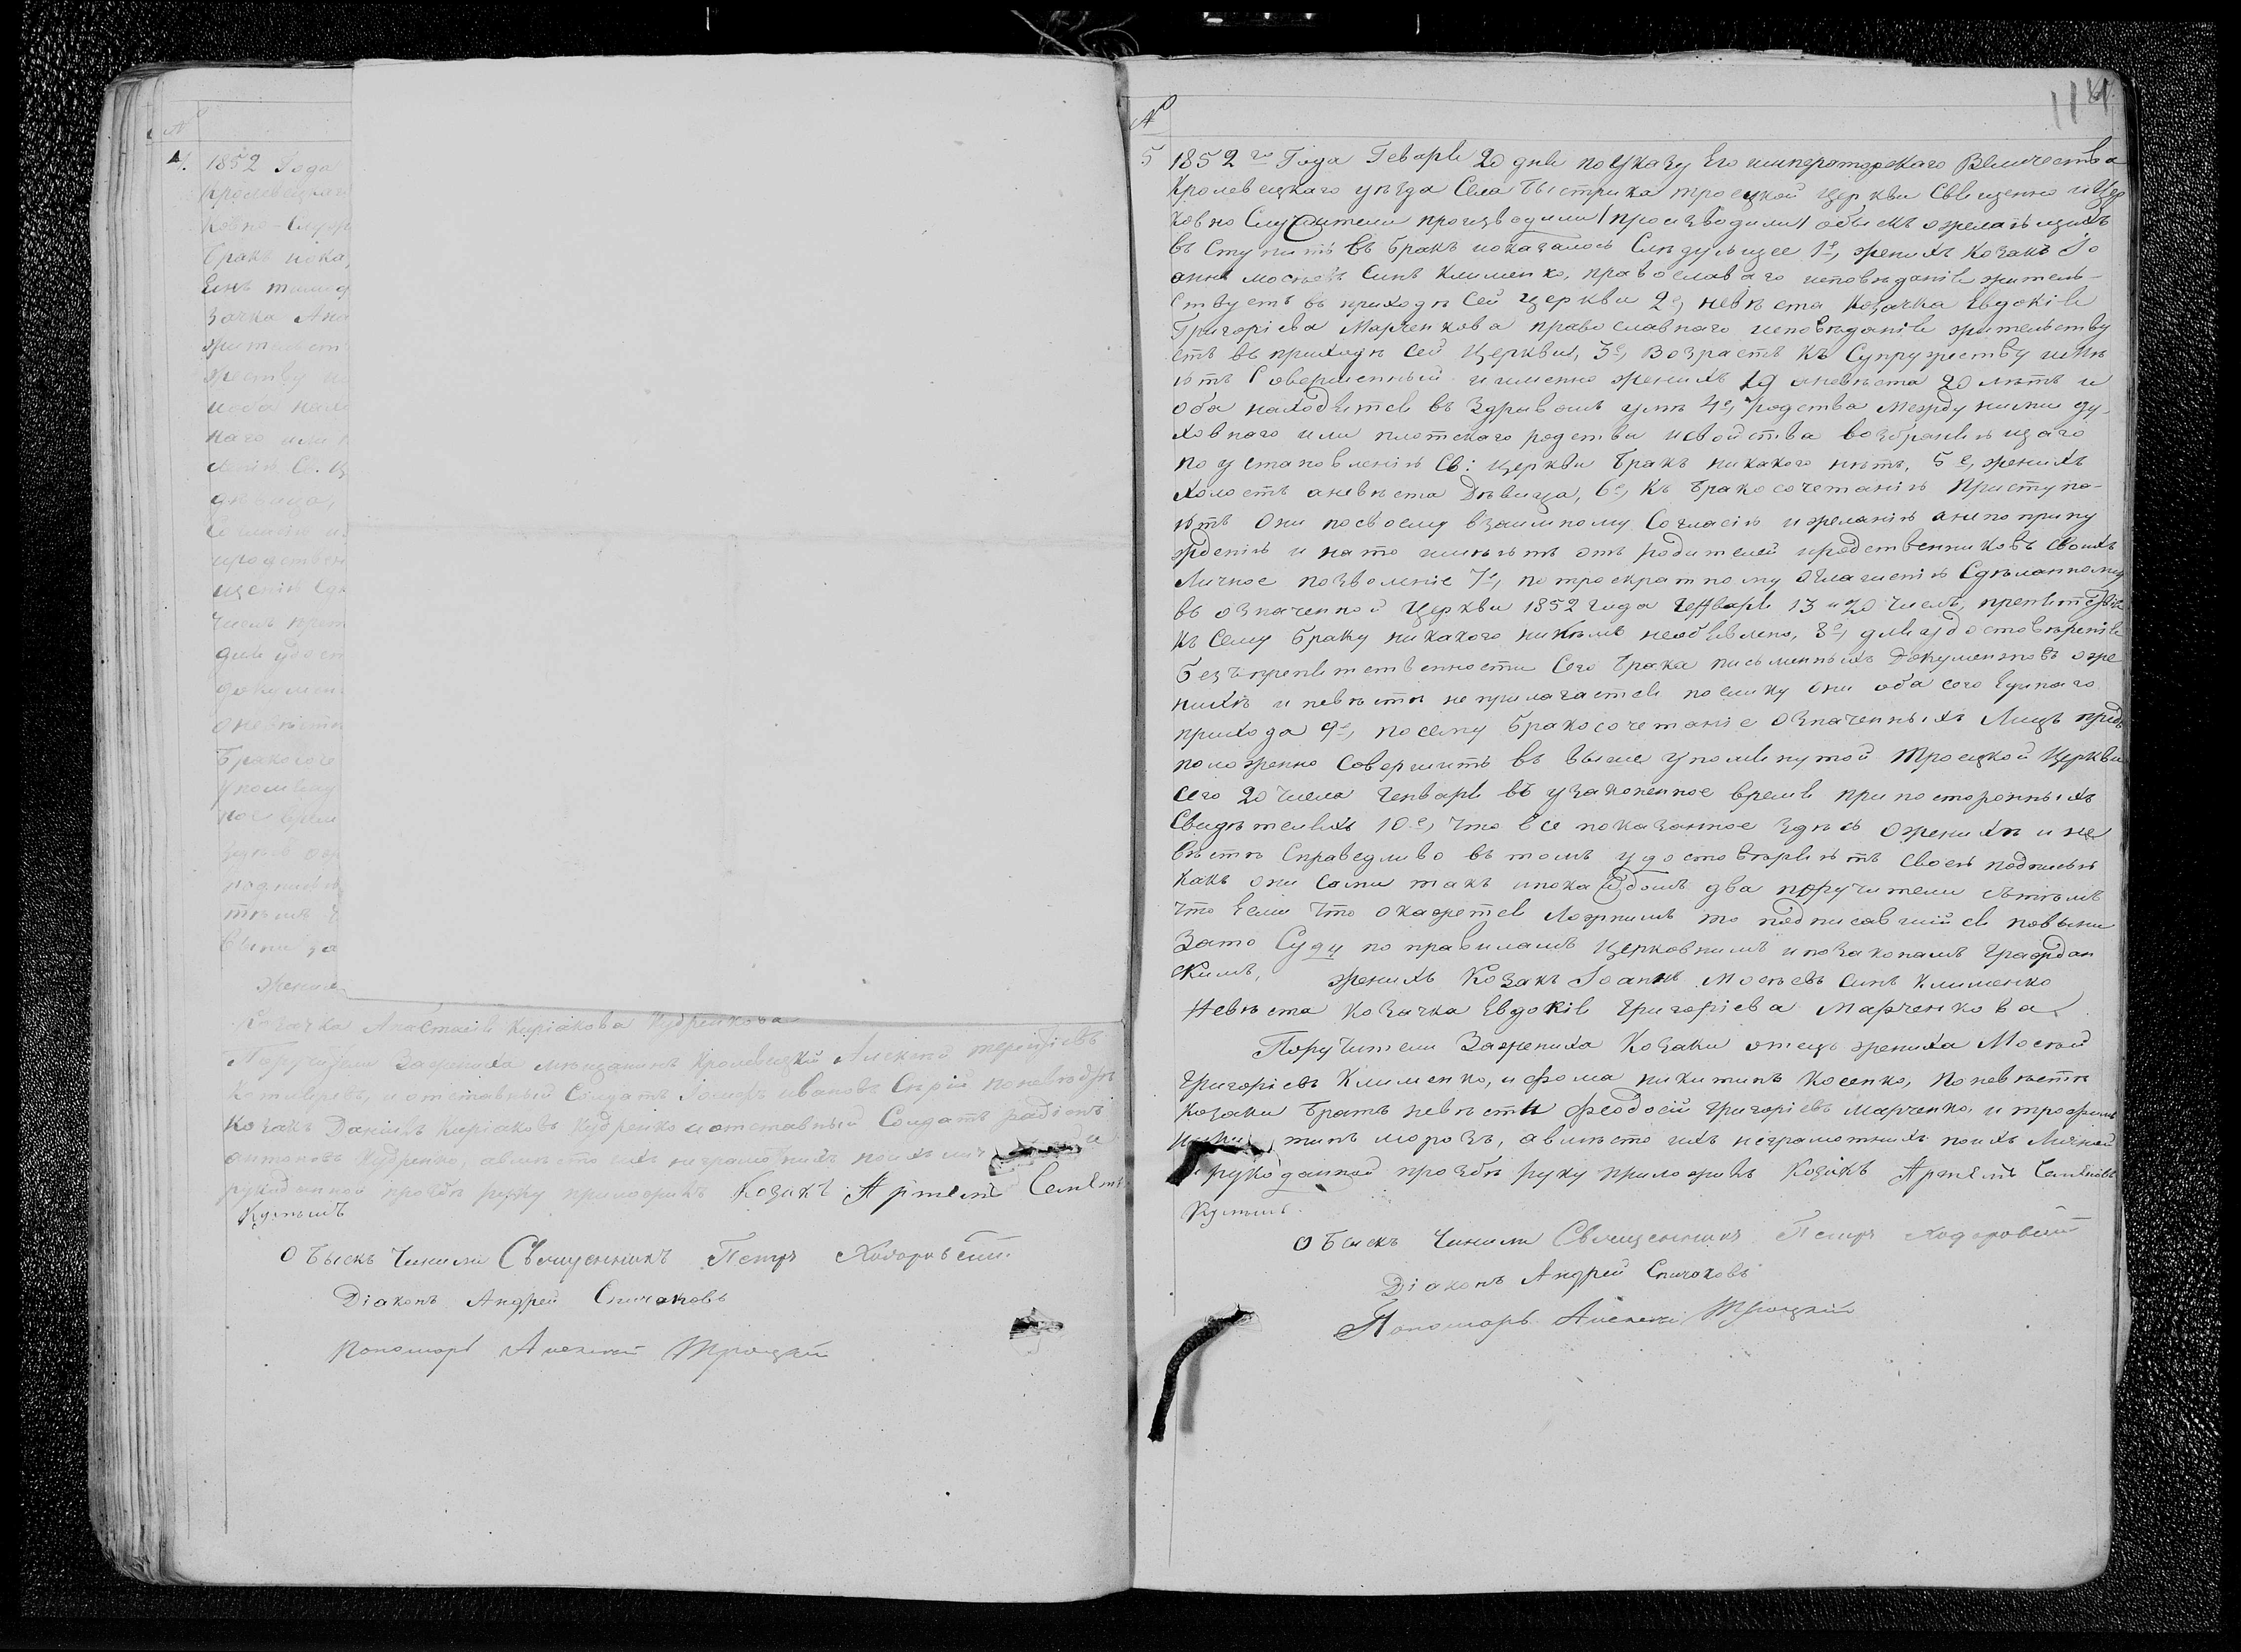 №
4. 1852 Года
Кролевецкаго
ковно-служи
бракъ пока
Синъ
зачка Ана
жительст
жеству и
и оба нахо
наго или
лению Св. Ц
дѣвица,
Согласію и
и родствен
щенію Сдѣ
числъ преп
для удост
докумен
о невѣстѣ
Бракосоче
упомяну
ное время
здѣсь о ж
подписью
тѣмъ
вины за
Женихъ
Козачка Анастасія Киріакова Кудрѣнкова
Поручители За жениха мѣщанинъ Кролевецкій Алексѣй терентіевъ
и отставный Солдатъ ивановъ Сѣрій по невѣстѣ
Козакъ Даніилъ Киріаковъ Кудренко и отставный Солдатъ радіонъ
антоновъ Кудренко, а вмѣсто ихъ неграмотнихъ по ихъ лич
рукоданной прозбѣ руку приложивъ Козакъ Артемъ Семенъ
Кулишъ
Обыскъ Чинили Священникъ Петръ Ходоровскій
Діаконъ Андрей Спичаковъ
Пономарь Алексѣй Троцкій
114
№
5 1852 го Года Геваря 20 дня по Указу Его императорскаго Величества
Кролевецкаго уѣзда Села Быстрика троецкой Церкви Священно и Цер
ковно Служители произведили / производили / обыскъ о желающихъ
въ Ступить въ бракъ и оказалось Слѣдующее 1е, женихъ Козакъ Іо
аннъ Мосѣевъ Синъ Клименко, православаго исповѣданія жителъ-
ствуетъ въ приходѣ Сей Церкви 2е, невѣста Козачка Евдокія
Григоріева Марченкова православнаго исповѣданія жительству
етъ въ приходѣ сей Церкви, 3е, Возрастъ къ Супружеству имѣ
ютъ Совершенный и именно женихъ 19 а невѣста 20 лѣтъ и
оба находятся въ Здравомъ умѣ 4е, родства Между ними ду-
ховнаго или плотскаго родства и свойства возбраняющаго
по установленію Св: Церкви бракъ никакого нѣтъ, 5е, женихъ
холостъ а невѣста Дѣвица, 6е, къ бракосочетанію Приступа-
ютъ Они по своему взаимному Согласію и желанію а не по прину
жденію и на то имѣютъ отъ родителей и родственниковъ своихъ
Личное позволеніе 7е, по троекратному оглашенію Сдѣланному
въ означенной Церкви 1852 года Генваря 13 и 20 Числъ, препятствія
къ Сему браку никакого никѣмъ необъявлено, 8е, для удостовѣренія
безъпрепятственности Сего брака письменныхъ Документовъ о же
нихѣ и невѣстѣ не прилагается поелику они оба сего Единаго
прихода 9е, посему бракосочетаніе Означенныхъ Лицъ пред
положенно Совершить въ выше упомянутой Троецкой Церкви
сего 20 числа Генваря въ узаконенное время при постороннихъ
Свидѣтеляхъ 10е, что все показанное здѣсь о женихѣ и не
вѣстѣ Справедливо въ томъ удостовѣряютъ своею подписью
какъ они сами такъ и по каждомъ два поручители сътѣмъ
что Если что окажется Ложнимъ то подписавшійся повыни
Зато Суду по правиламъ Церковнимъ и позаконамъ Граждан
скимъ, женихъ Козакъ Іоаннъ Мосѣевъ Синъ Клименко
Невѣста Козачка Евдокія Григоріева Марченкова
Поручители Зажениха Козаки отецъ жениха Мосѣй
Григоріевъ Клименко, и фома никитинъ Косенко, Поневѣстѣ
Козаки Братъ невѣсти феодосій Григоріевъ Марченко, и трофимъ
тинъ морозъ, авмѣсто ихъ неграмотнихъ поихъ Личной
рукоданной прозбѣ руку приложивъ Козакъ Артемъ Семеновъ
Кулишъ.
Обыскъ Чинили Священникъ Петръ Ходоровскій
Діаконъ Андрей Спичаковъ
Пономарь Алексѣй Троцкій